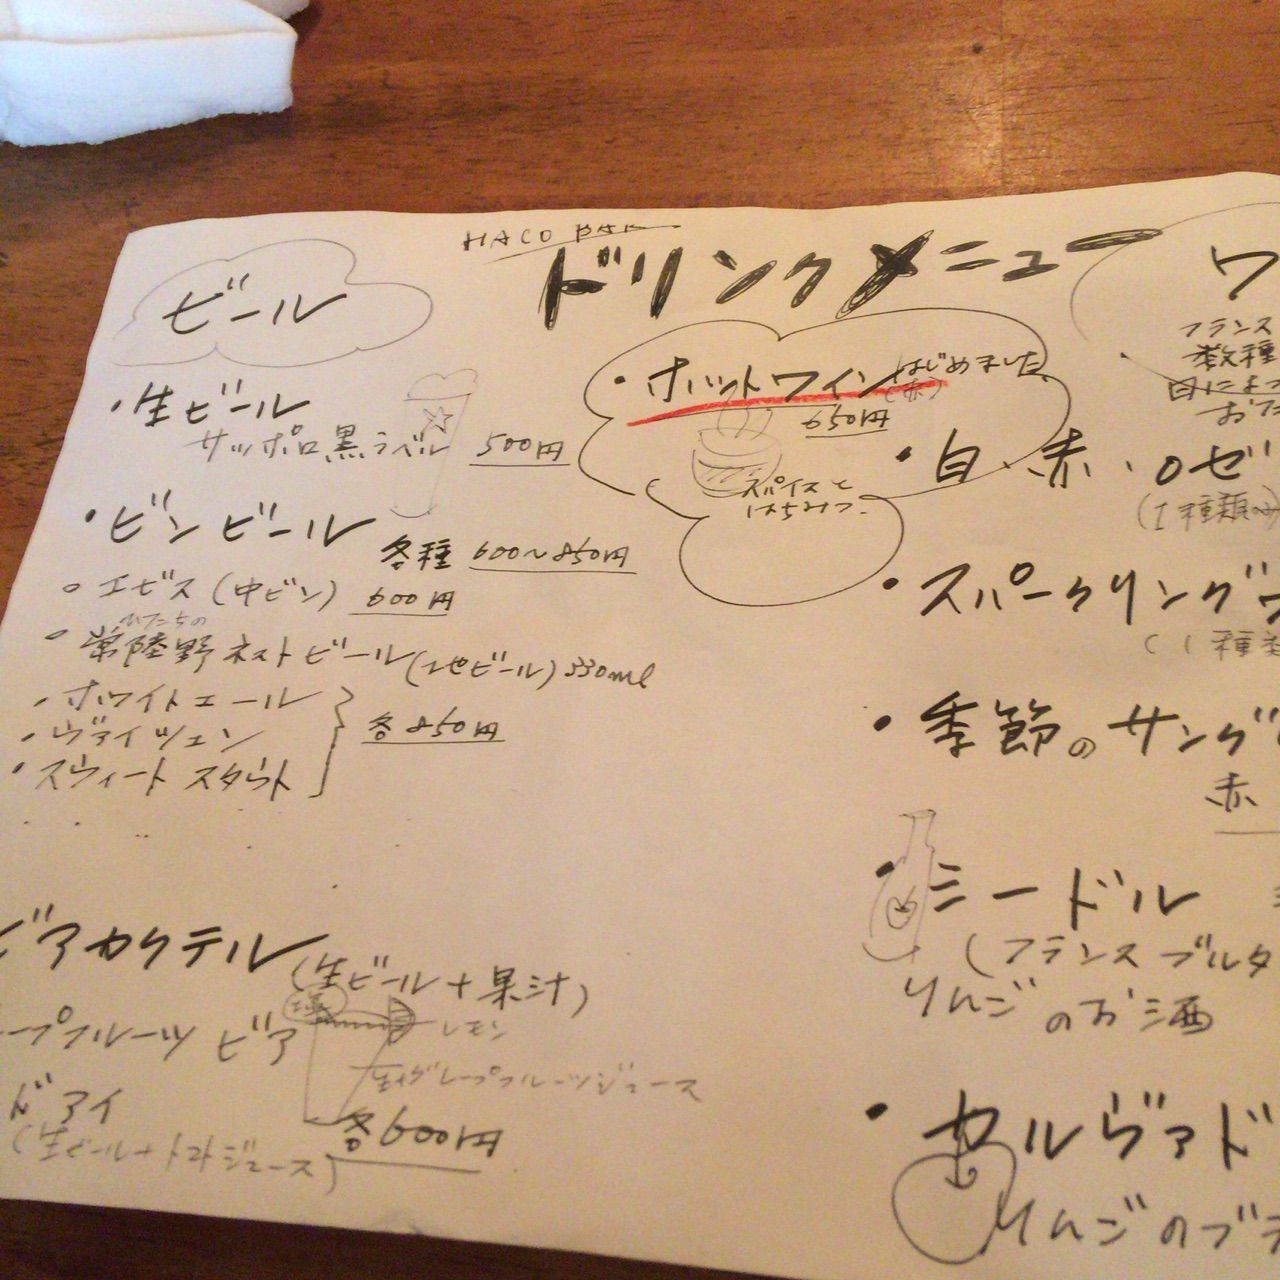 HACO BAR
ドリンクメニュー
ビール
・生ビール
サッポロ黒ラベル 500円
・ビンビール
各種 600〜850円
○ エビス(中ビン) 600円
ひたちの
○ 常陸野ネストビール(地ビール)330ml
・ホワイトエール
・ヴァイツェン
・スウィートスタウト
各850円
ビアカクテル(生ビール+果汁)
ープフルーツ ビア
レモン
生グレープフルーツジュース
ドアイ
(生ビール+トマトジュース)
各600円
・ホットワイン はじめました
(赤)
650円
スパイスと
はちみつ
ワ
フランス
数種
日によっ
おた
・白・赤・ロゼ
(1種類のみ
・スパークリングワ
(1種類
・季節のサングリ
赤
・シードル
(フランス ブルタ
りんごのお酒
・カルヴァド
りんごのブラ